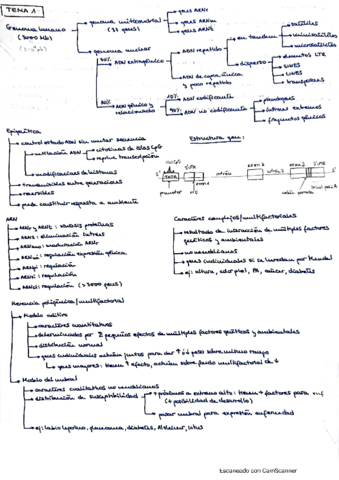 TEMA 1
Genoma humano
(3000 Mb)
genoma mitocondrial
(37 genes)
genes ARNr
genes ARNm
genes ARNt
genoma nuclear
ADN extragénico
ADN repetido
en tandem
satélites
minisatélites
microsatélites
disperso
elementos LTR
SINES
LINES
transposones
ADN de copia única
y poco repetido
ADN génico y
relacionado
10%
ADN codificante
90%
ADN no codificante
pseudogenes
intrones, extremos
fragmentos génicos
Epigenética
control estado ADN sin mutar secuencia
metilación ADN
citosinas de islas CpG
reprime transcripción
modificaciones de histonas
transmisibles entre generaciones
reversibles
puede constituir respuesta a ambiente
Estructura gen:
5'
TATA
5'UTR
exón 1
intrón 1
exón 2
intrón 2
exón 3
3'UTR
3'
promotor
ARN
ARNr y ARNt: síntesis proteínas
regulación expresión génica
regulación
regulación
regulación (>3000 genes)
Caracteres complejos/multifactoriales
resultado de interacción de múltiples factores
genéticos y ambientales
no mendelianos
genes individuales sí se heredan por Mendel
ej: altura, color piel, PA, cáncer, diabetes
Herencia poligénica/multifactorial
Modelo aditivo
caracteres cuantitativos
determinados por Σ pequeños efectos de múltiples factores genéticos y ambientales
distribución normal
genes individuales actúan juntos para dar ↑ ó ↓ peso sobre mismo rasgo
genes mayores: tienen ↑ efecto, actúan sobre fondo multifactorial de ↓
Modelo del umbral
caracteres cualitativos no mendelianos
distribución de susceptibilidad
+ próximos a extremo alto: tienen + factores para enf
(+ posibilidad de desarrollo)
pasar umbral para expresión enfermedad
ej: labio leporino, glaucoma, diabetes, Alzheimer, lupus
Escaneado con CamScanner